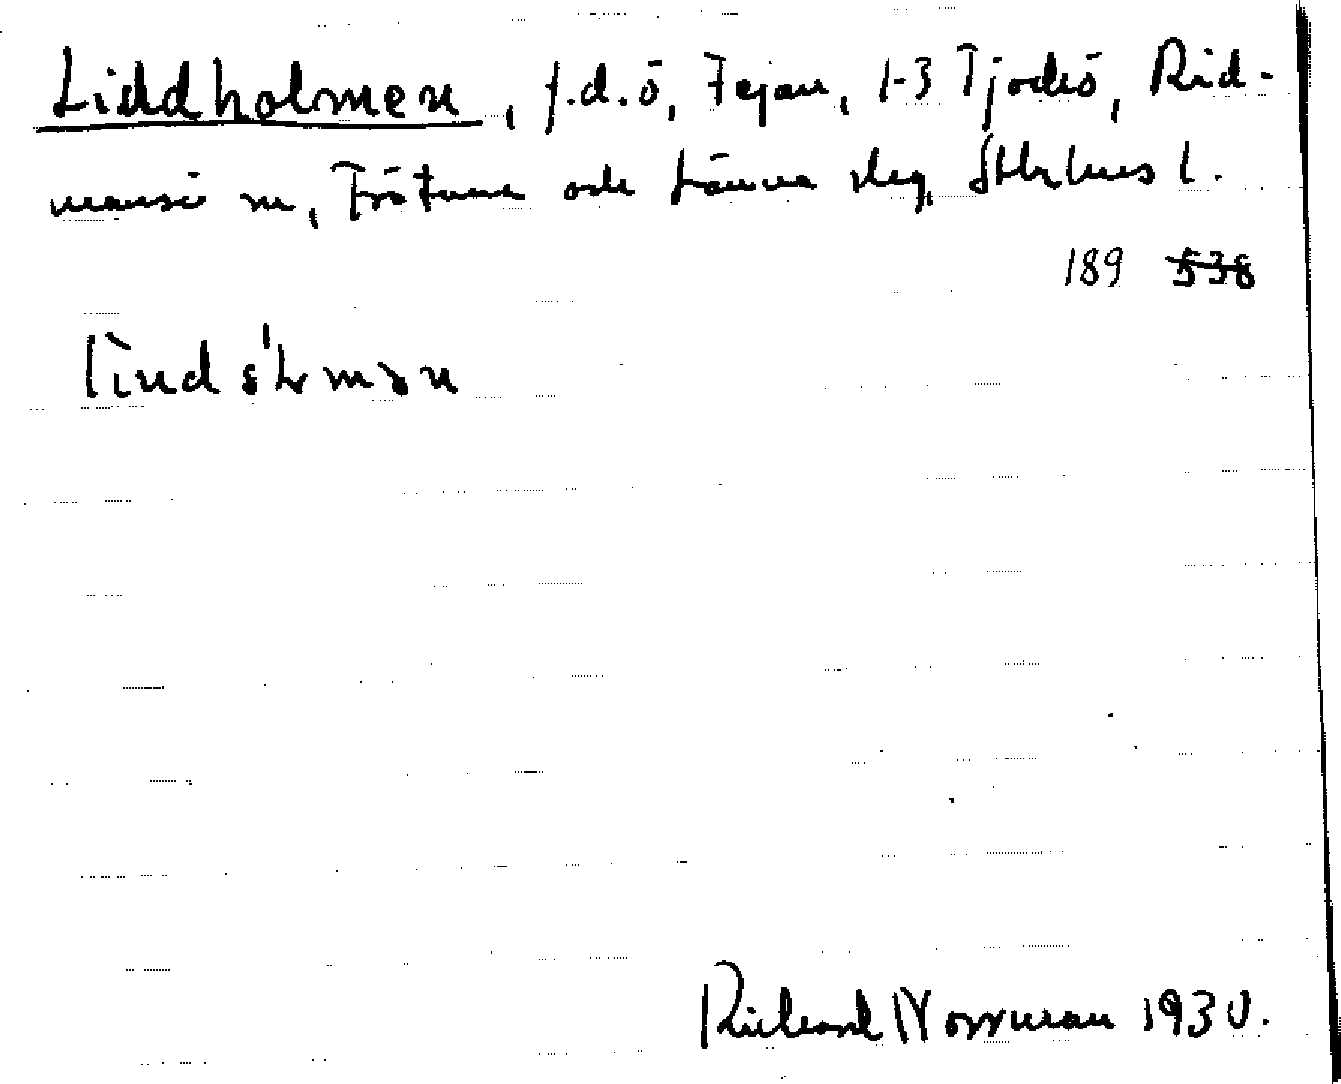 Liddholmen, f.d. ö, Fejan, 1-3 Tjockö, Råd-
mansö sn, Frötuna och Länna skg, Sthlms l.
189 538
Richard Norrman 1930.